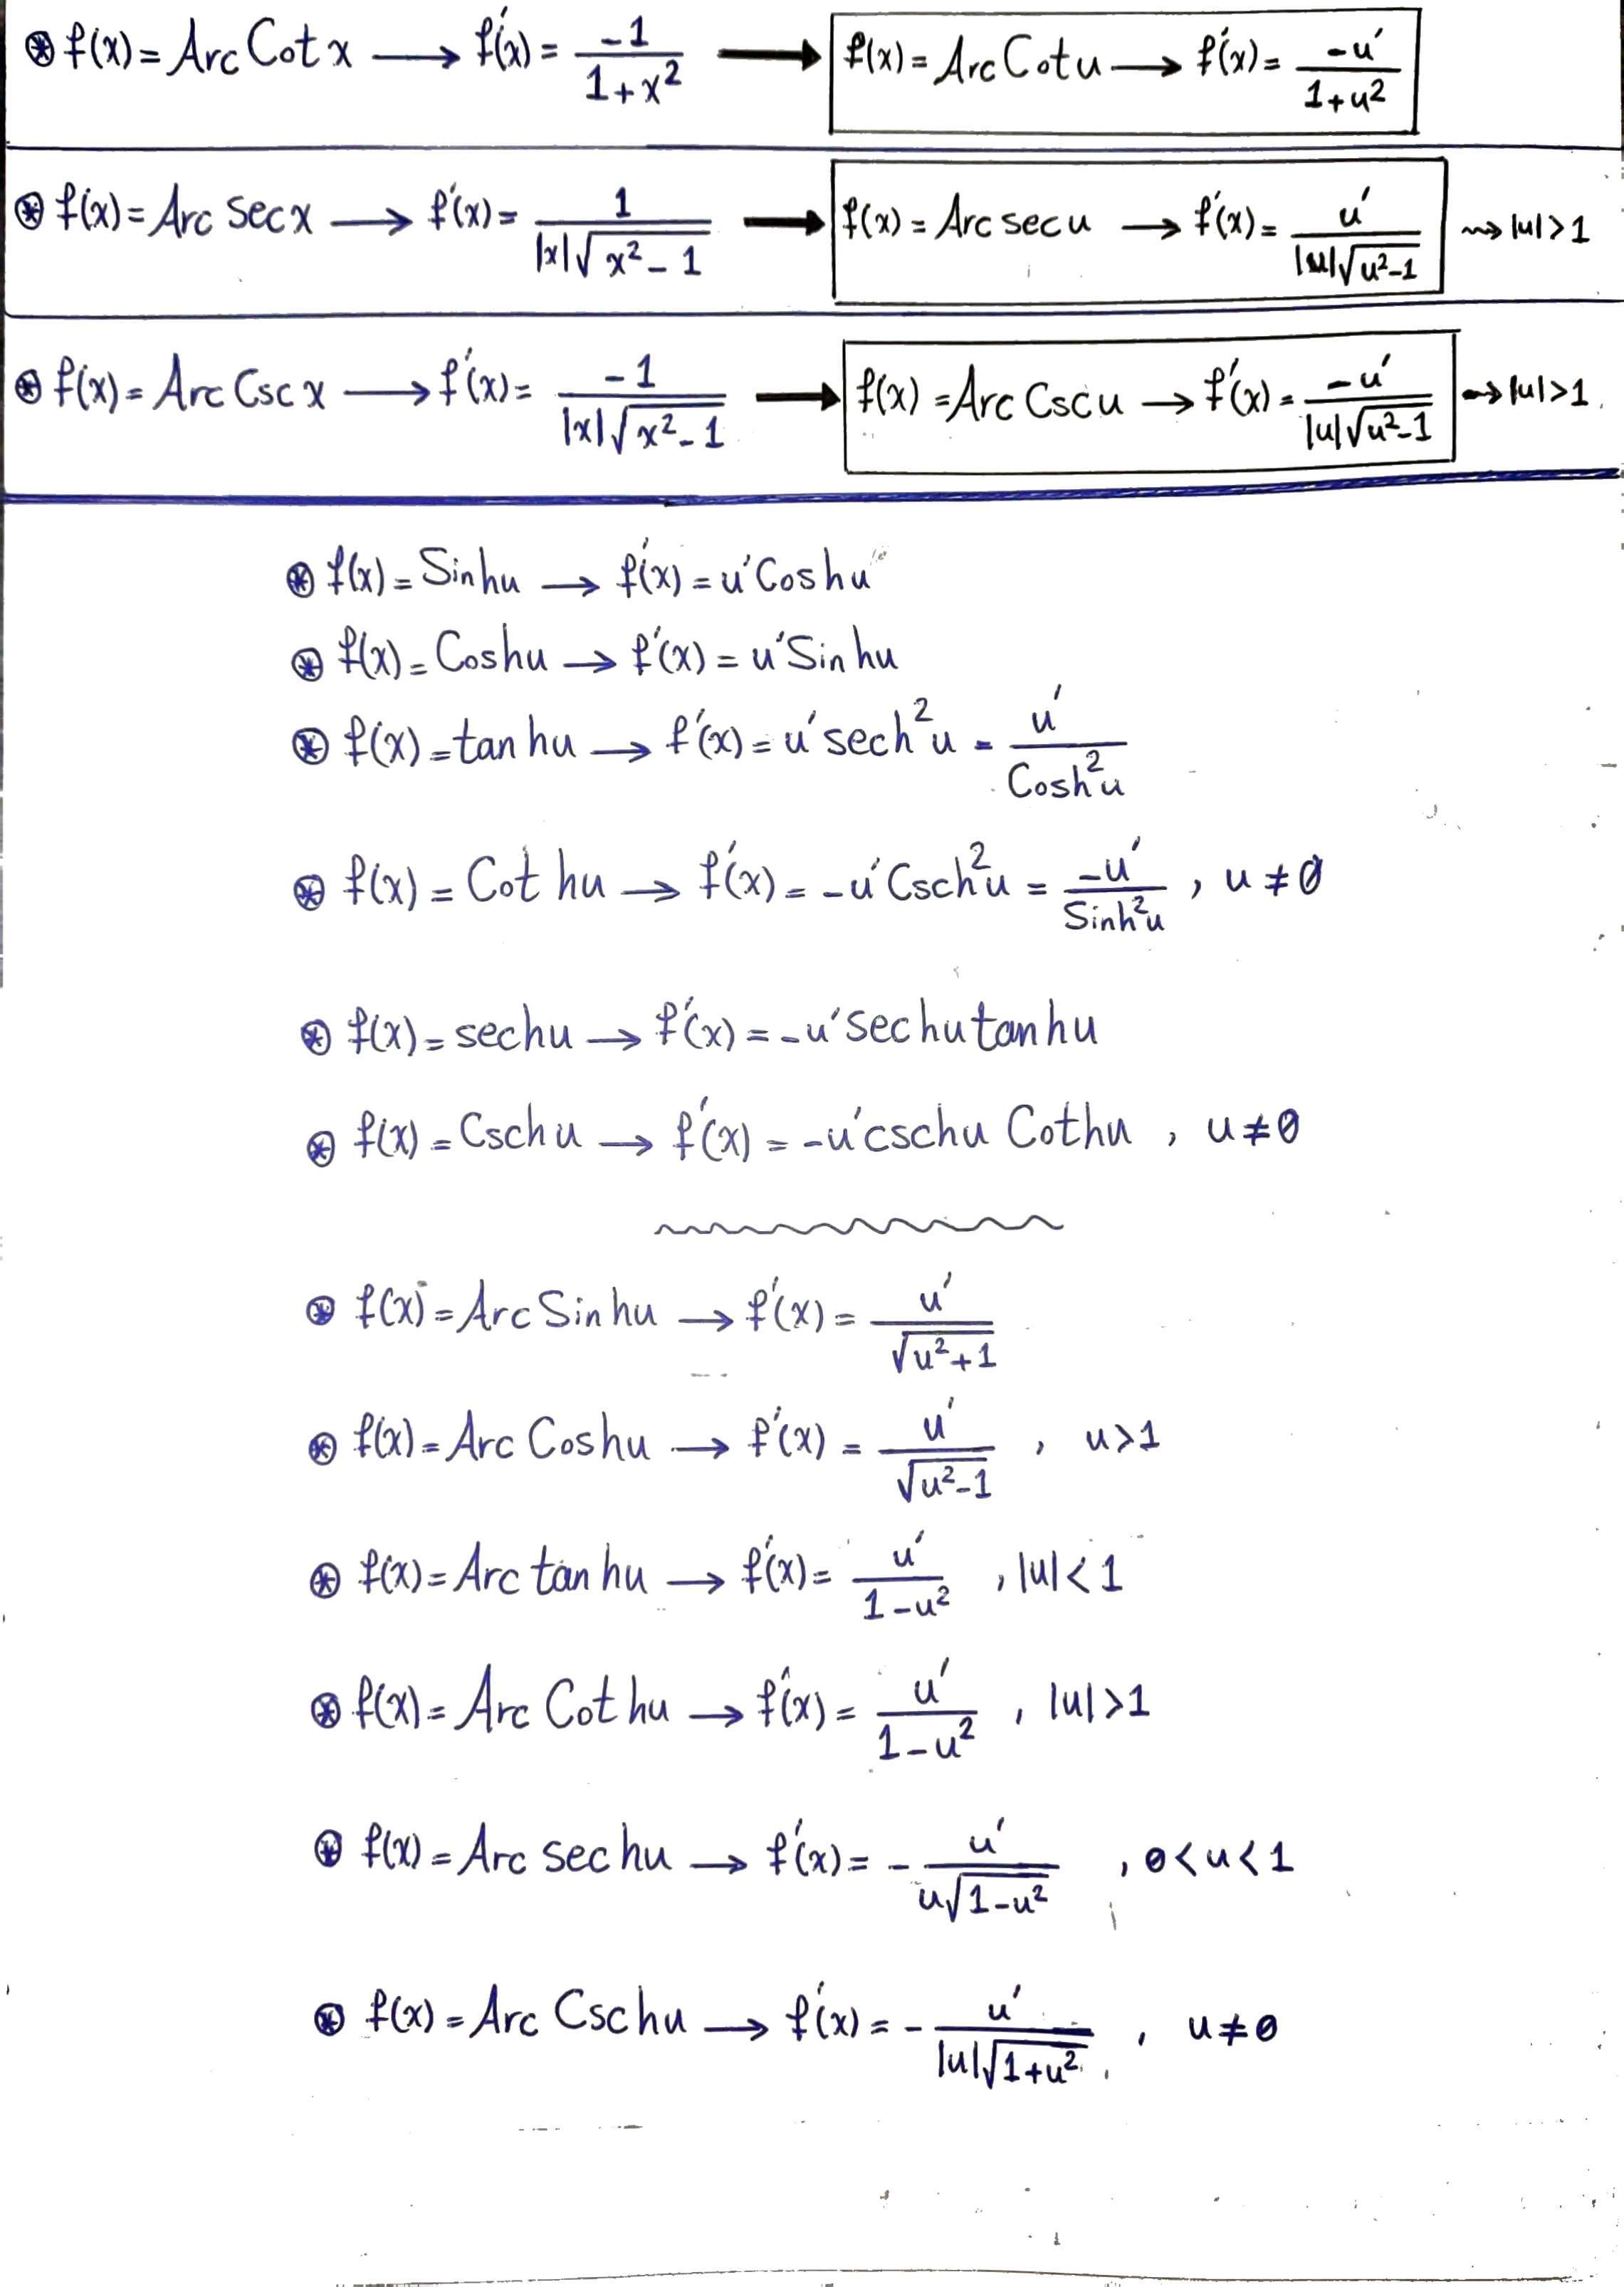 ⊛ f(x) = Arc Cot x ⟶ f'(x) = -1 / 1+x² ⟶ f(x) = Arc Cot u ⟶ f'(x) = -u' / 1+u²
⊛ f(x) = Arc sec x ⟶ f'(x) = 1 / |x|√(x²-1) ⟶ f(x) = Arc sec u ⟶ f'(x) = u' / |u|√(u²-1) ⇝ |u|>1
⊛ f(x) = Arc Csc x ⟶ f'(x) = -1 / |x|√(x²-1) ⟶ f(x) = Arc Csc u ⟶ f'(x) = -u' / |u|√(u²-1) ⇝ |u|>1
⊛ f(x) = Sinhu ⟶ f'(x) = u'Coshu
⊛ f(x) = Coshu ⟶ f'(x) = u'Sinhu
⊛ f(x) = tanhu ⟶ f'(x) = u'sech²u = u' / Cosh²u
⊛ f(x) = Cothu ⟶ f'(x) = -u'Csch²u = -u' / Sinh²u , u≠0
⊛ f(x) = sechu ⟶ f'(x) = -u'sechutanhu
⊛ f(x) = Cschu ⟶ f'(x) = -u'cschu Cothu , u≠0
⊛ f(x) = Arc Sinhu ⟶ f'(x) = u' / √(u²+1)
⊛ f(x) = Arc Coshu ⟶ f'(x) = u' / √(u²-1) , u>1
⊛ f(x) = Arc tanhu ⟶ f'(x) = u' / 1-u² , |u|<1
⊛ f(x) = Arc Cothu ⟶ f'(x) = u' / 1-u² , |u|>1
⊛ f(x) = Arc sechu ⟶ f'(x) = - u' / u√(1-u²) , 0<u<1
⊛ f(x) = Arc Cschu ⟶ f'(x) = - u' / |u|√(1+u²) , u≠0